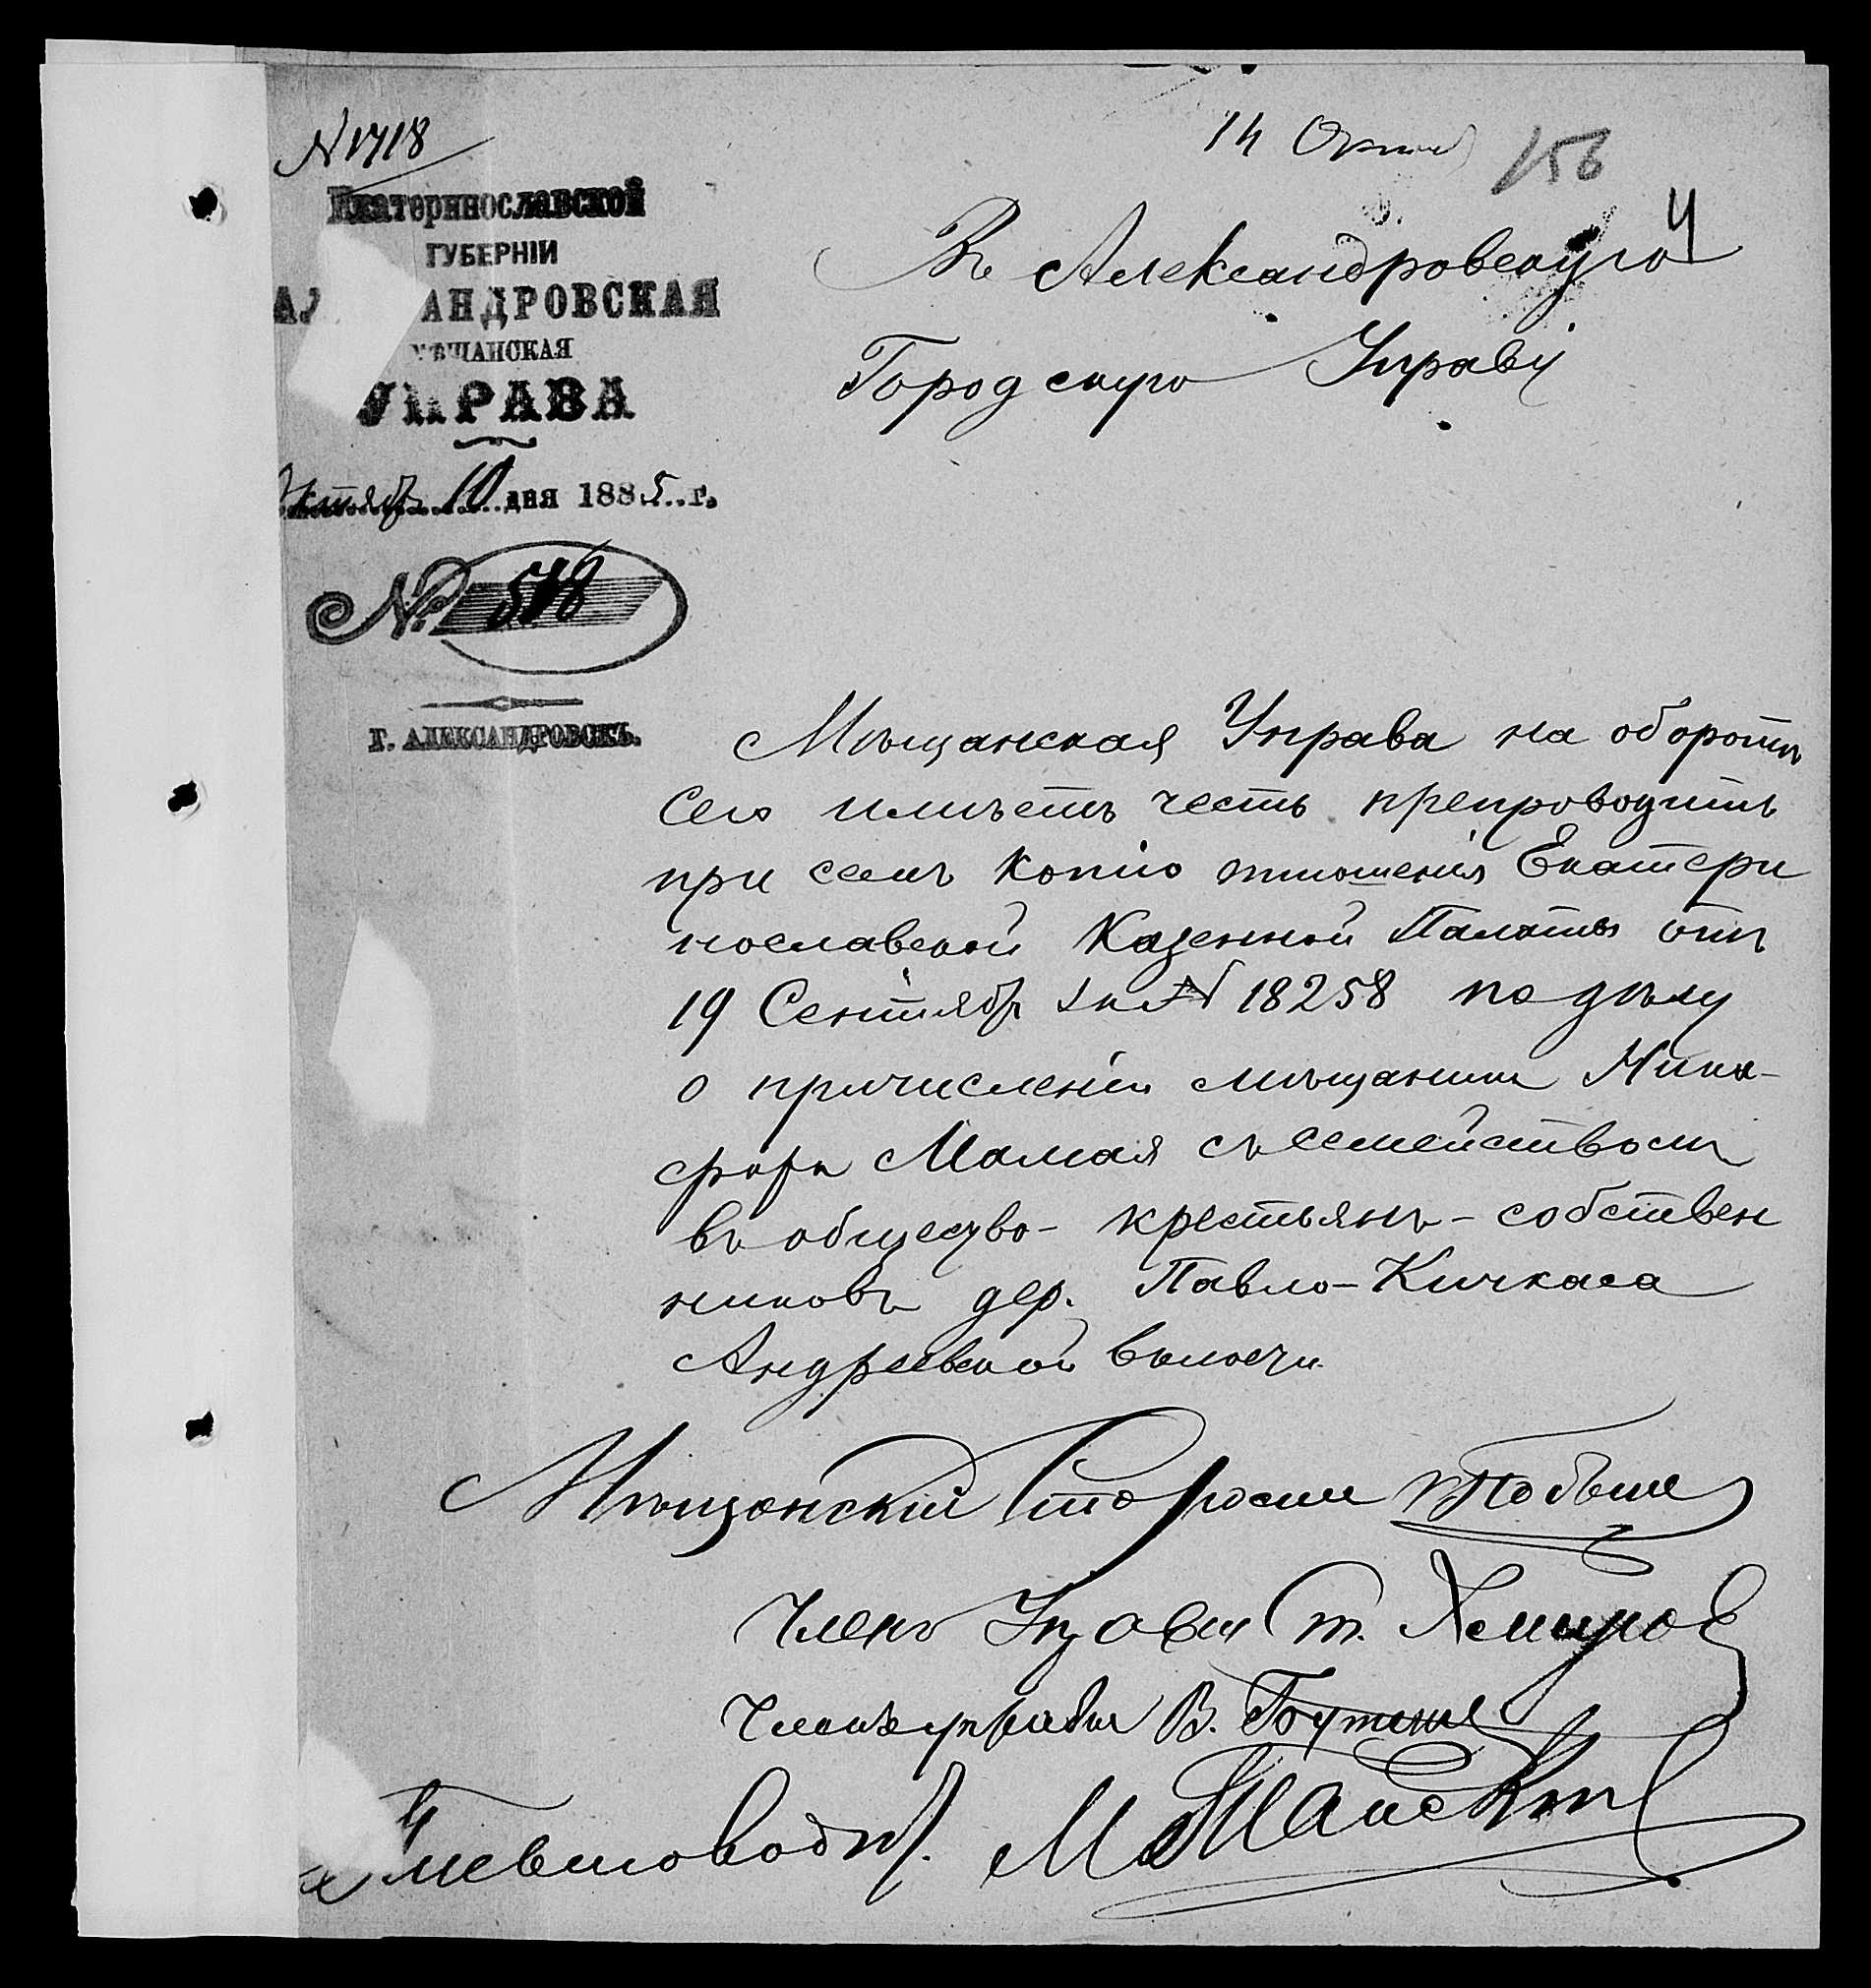 N 1718
14 Октяб
156
4
Екатеринославской
ГУБЕРНІИ
АЛ АНДРОВСКАЯ
МѢЩАНСКАЯ
УПРАВА
Октябр 10 дня 1885 г.
№ 578
Г. АЛЕКСАНДРОВСКЪ.
Въ Александровскую
Городскую Управу
Мѣщанская Управа на оборотѣ
сего имѣетъ честь препроводить
при семъ копію отношенія Екатери
нославской Казенной Палаты отъ
19 Сентябр за N 18258 по дѣлу
о причисленіи мѣщанина Ники-
фора Мамая съ семействомъ
въ общество - крестьянъ - собствен
никовъ дер. Павло-Кичкаса
Андреевской волости.
Мѣщанскій Староста
Членъ Управы
Членъ управы В.